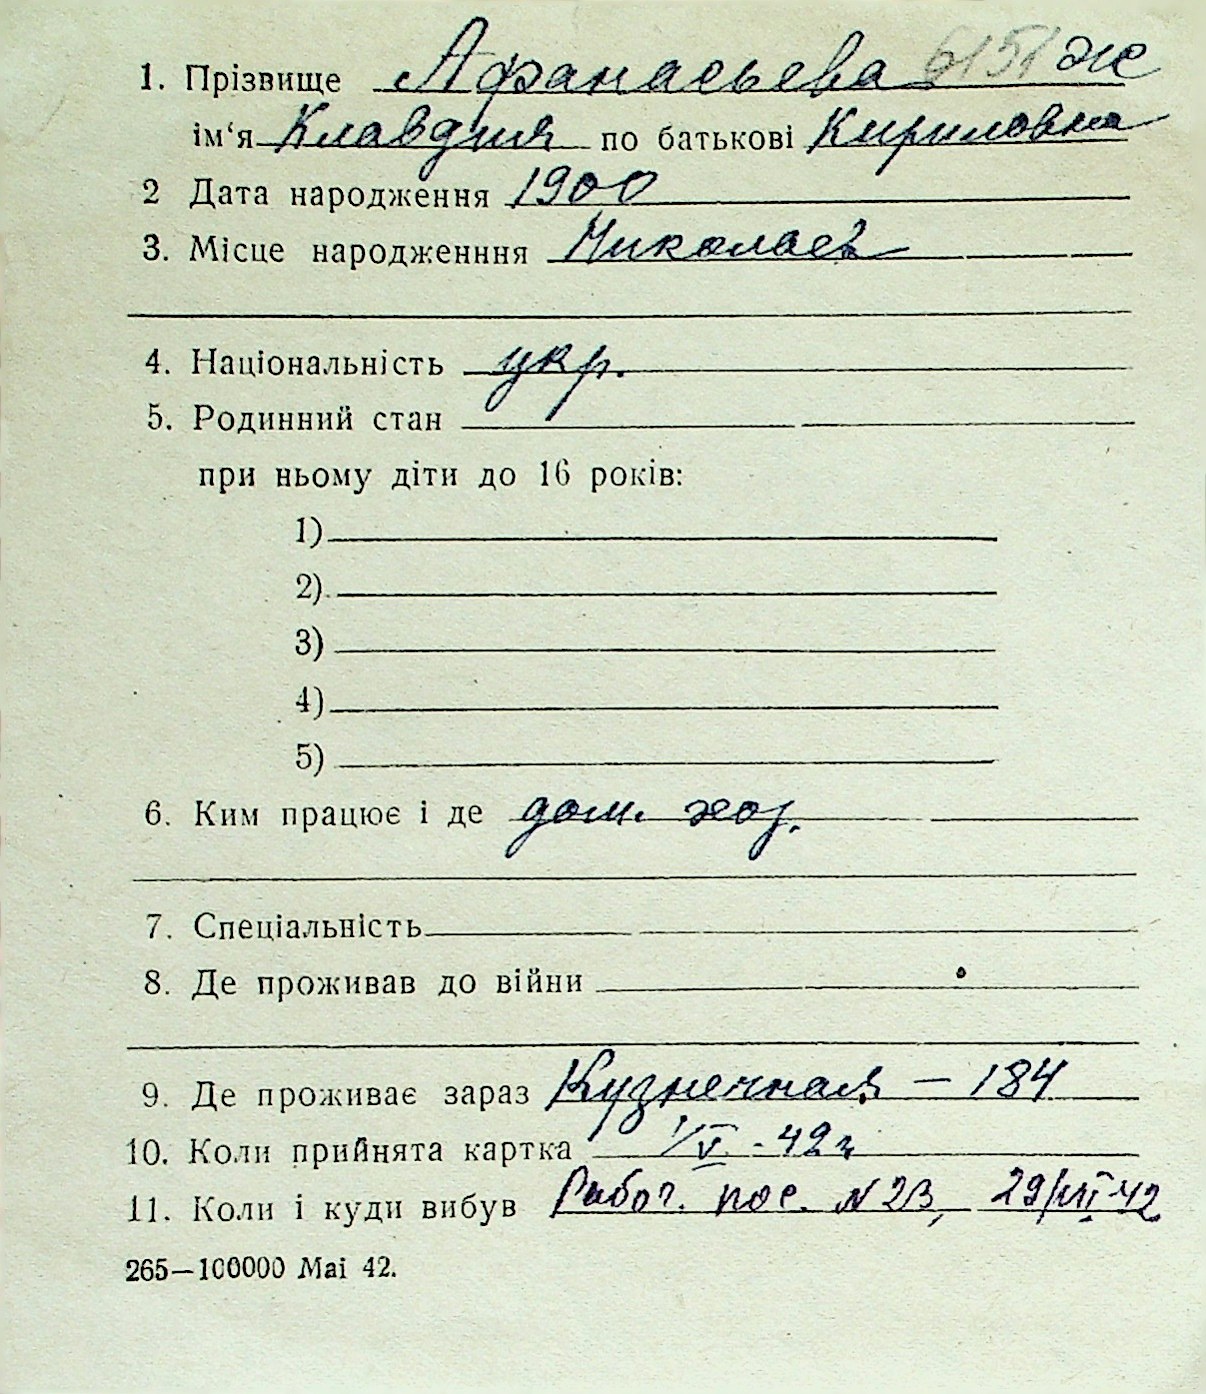 1. Прізвище Афанасьева 6151 ж
ім‘я Клавдия по батькові Кириловна
2 Дата народження 1900
3. Місце народженння Николаев
4. Національність укр.
5. Родинний стан
при ньому діти до 16 років:
1)
2)
3)
4)
5)
6. Ким працює і де дом. хоз.
7. Спеціальність
8. Де проживав до війни
9. Де проживає зараз Кузнечная – 184
10. Коли прийнята картка 1/V - 42 г
11. Коли і куди вибув Рабоч. пос. N 23, 29/VII 42
265—100000 Mai 42.